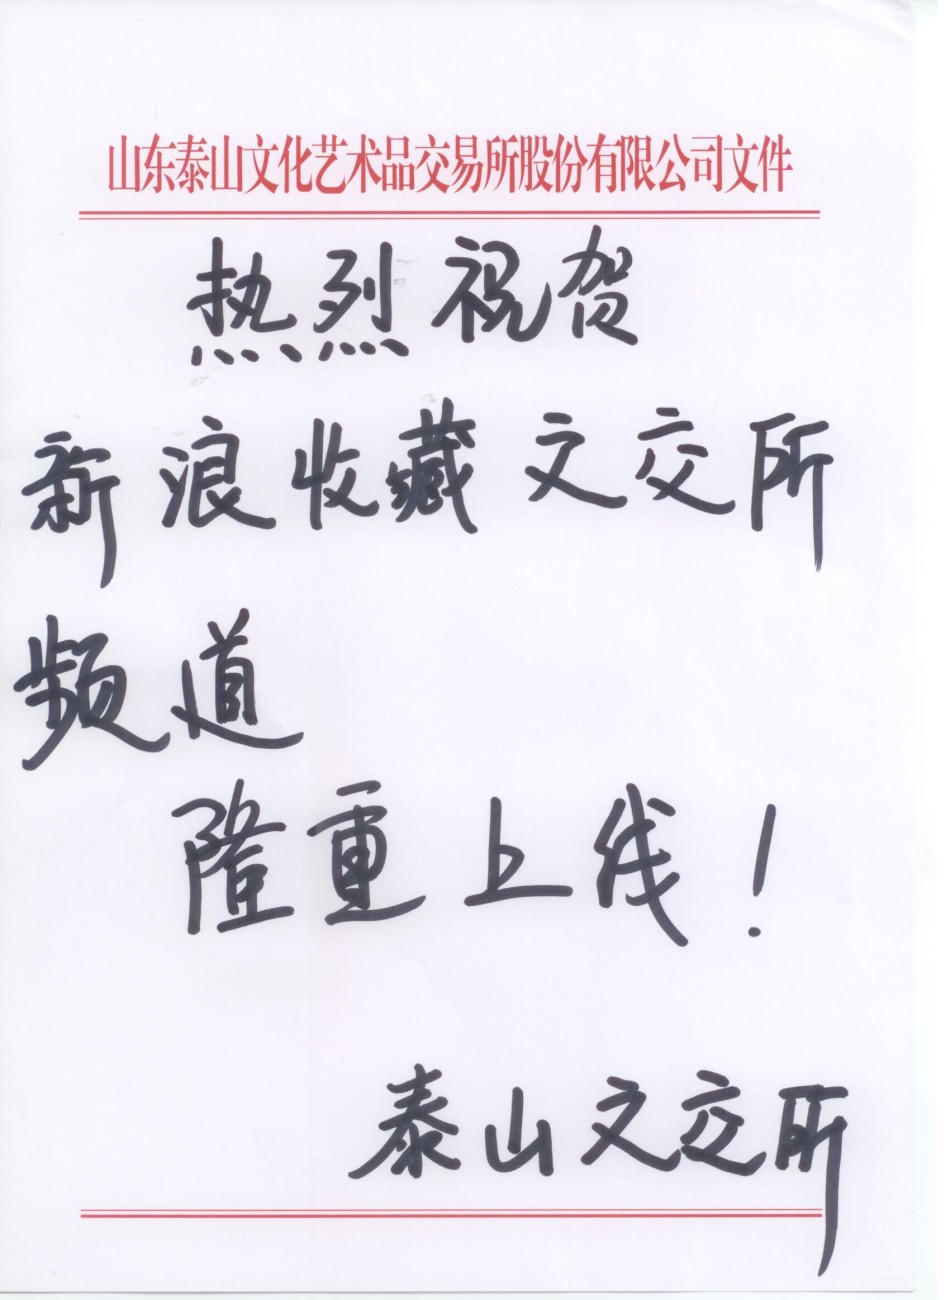 山东泰山文化艺术品交易所股份有限公司文件
热烈祝贺
新浪收藏文交所
频道
隆重上线！
泰山文交所